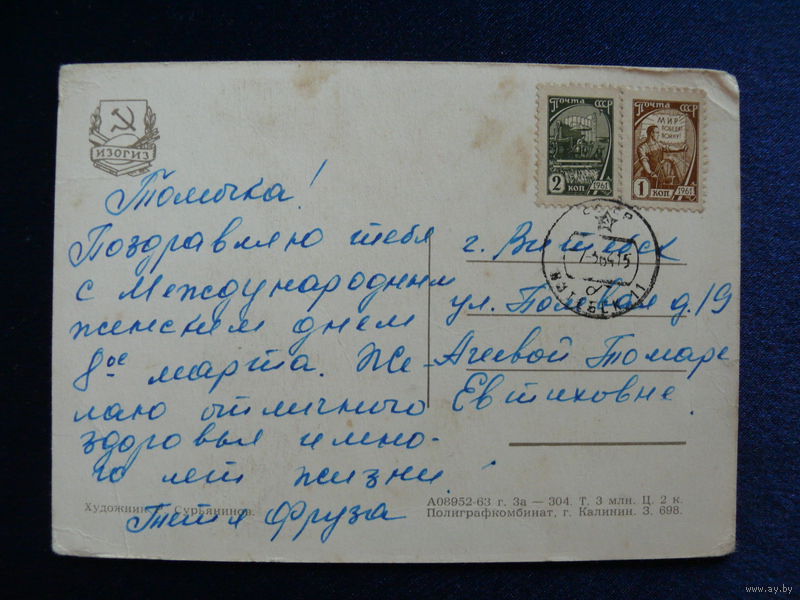 ИЗОГИЗ
Почта СССР
2 коп 1961
Почта СССР
МИР ПОБЕДИТ ВОЙНУ!
1 коп 1961
СССР
Томочка!
Поздравляю тебя
с Международным
женским днем
8ое марта. Же-
лаю отличного
здоровья и мно-
го лет жизни.
Тетя Фруза
г. Витебск
ул. Полевая д. 19
Агеевой Томаре
Евтиховне
Художник Сурьянинов.
А08952-63 г. За — 304. Т. 3 млн. Ц. 2 к.
Полиграфкомбинат, г. Калинин. З. 698.
www.ay.by